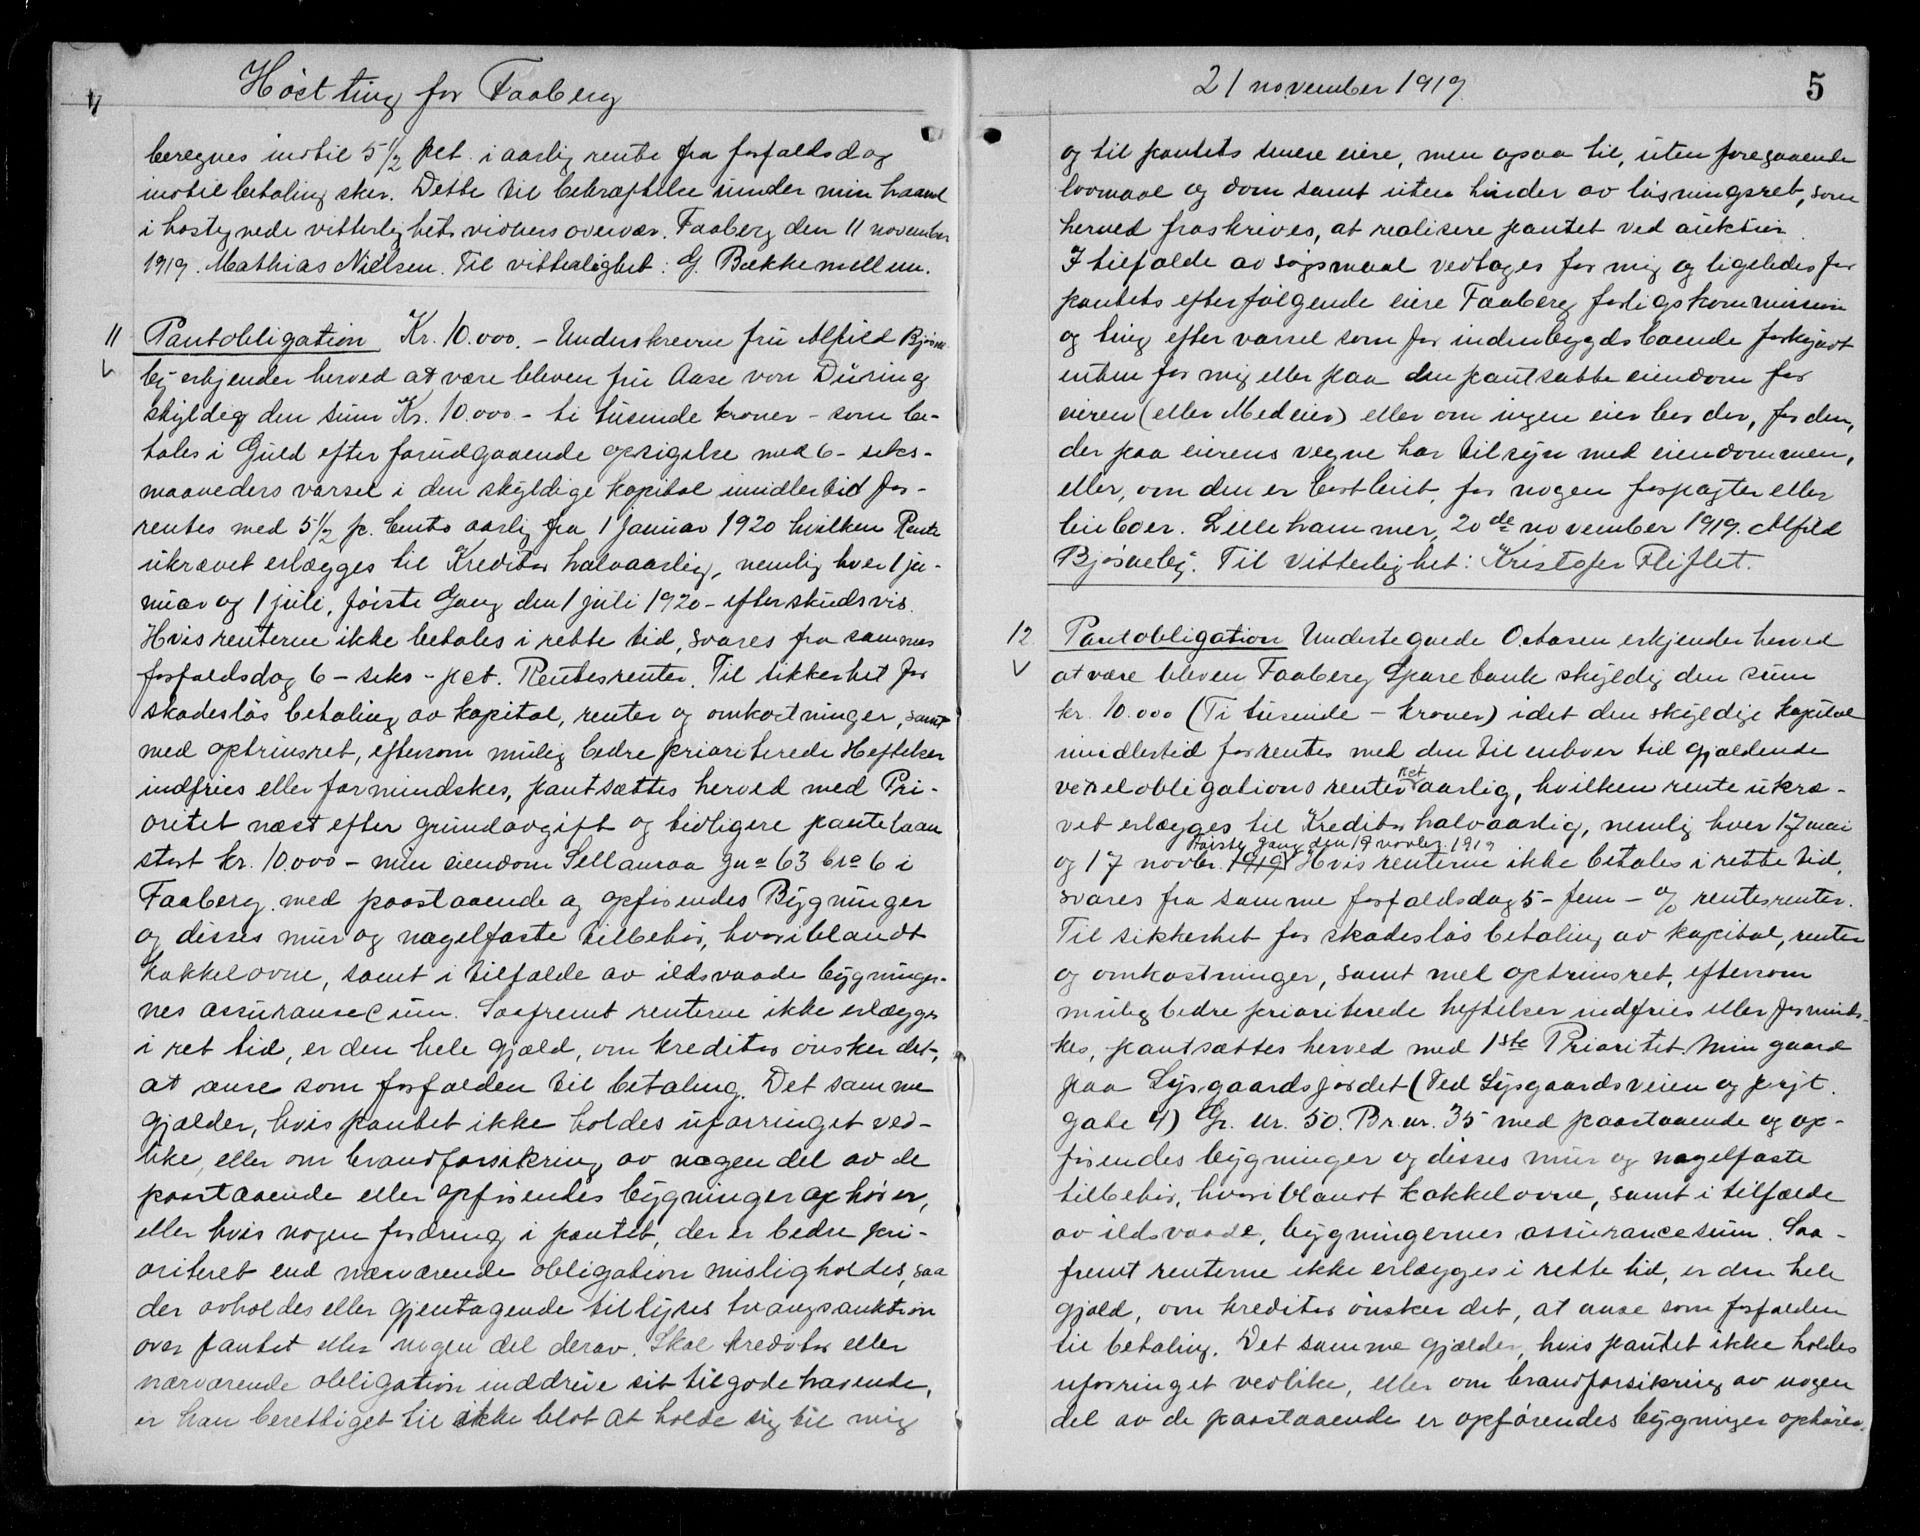 Høstting for Faaberg
beregnes indtil 5 1/2 pct. i aarlig rente fra forfaldsdag
indtil betaling sker. Dette til bekræftelse under min haand
i hostegnede vitterlighetsvidners overvær. Faaberg den 11 november
1919. Mathias Nielsen. Til vitterlighet: G. Bækkemellem.
11 Pantobligation Kr. 10.000. - Underskrevne fru Alfild Bjørne-
by erkjender herved at være bleven fru Aase von Düring
skyldig den sum Kr. 10.000 - ti tusende kroner - som be-
tales i Guld efter forudgaaende opsigelse med 6 - seks -
maaneders varsel i den skyldige kapital imidlertid for-
rentes med 5 1/2 p. Cento aarlig fra 1 januar 1920 hvilken Rente
ukrævet erlægges til Kreditor halvaarlig, nemlig hver 1 ja-
nuar og 1 juli, første Gang den 1 juli 1920 - efterskudsvis.
Hvis renterne ikke betales i rette tid, svares fra sammes
forfaldsdag 6 - seks - pct. Rentesrenter. Til sikkerhet for
skadesløs betaling av kapital, renter og omkostninger, samt
med optrinsret, eftersom mulig bedre prioriterede Heftelser
indfries eller formindskes, pantsættes herved med Pri-
oritet næst efter grundavgift og tidligere pantelaan
stort kr. 10.000 - min eiendom Sellanraa gno 63 bno 6 i
Faaberg med paastaaende og opførendes Bygninger
og disses mur og nagelfaste tilbehør, hvoriblandt
kakkelovne, samt i tilfælde av ildsvaade bygninger-
nes assurancesum. Saafremt renterne ikke erlægges
i ret tid, er den hele gjæld, om kreditor ønsker det,
at anse som forfalden til betaling. Det samme
gjælder, hvis pantet ikke holdes uforringet ved-
like, eller om brandforsikring av nogen del av de
paastaaende eller opførendes bygninger ophører,
eller hvis nogen fordring i pantet, der er bedre pri-
oriteret end nærværende obligation misligholdes, saa
der avholdes eller gjentagende tillyses tvangsauktion
over pantet eller nogen del derav. Skal kreditor efter
nærværende obligation inddrive sit tilgodehavende,
er han berettiget til ikke blot at holde sig til mig
21 november 1919.
5
og til pantets senere eiere, men ogsaa til, uten foregaaende
lovmaal og dom samt uten hinder av løsningsret, som
herved fraskrives, at realisere pantet ved auktion.
I tilfælde av søgsmaal vedtages for mig og ligeledes for
pantets efterfølgende eiere Faaberg forligskommission
og ting efter varsel som for indenbygdsboende forkyndt
enten for mig eller paa den pantsatte eiendom for
eieren (eller Medeier) eller om ingen eier bor der, for den,
der paa eierens vegne har tilsyn med eiendommen,
eller, om den er bortleiet, for nogen forpagter eller
leieboer. Lillehammer, 20de november 1919. Alfild
Bjørneby. Til vitterlighet: Kristofer Fliflet.
12. Pantobligation Undertegnede O. erkjender herved
at være bleven Faaberg Sparebank skyldig den sum
kr. 10.000 (Ti tusende - kroner) idet den skyldige kapital
imidlertid forrentes med den til enhver tid gjældende
vexelobligationsrente pct. aarlig, hvilken rente ukræ-
vet erlægges til Kreditor halvaarlig, nemlig hver 17 mai
første gang den 17 novbr. 1919
og 17 novbr. 1919 Hvis renterne ikke betales i rette tid,
svares fra samme forfaldsdag 5 - fem - % rentesrenter.
Til sikkerhet for skadesløs betaling av kapital, renter
og omkostninger, samt med optrinsret, eftersom
mulig bedre prioriterede heftelser indfries eller formind-
skes, pantsættes herved med 1ste Prioritet min gaard
paa Lysgaardsjordet (Ved Lysgaardsveien og projt.
gate 4) Gr. nr. 50. Br. nr. 35 med paastaaende og op-
førendes bygninger og disses mur og nagelfaste
tilbehør, hvoriblandt kakkelovne, samt i tilfælde
av ildsvaade, bygningernes assurancesum. Saa-
fremt renterne ikke erlægges i rette tid, er den hele
gjæld, om kreditor ønsker det, at anse som forfalden
til betaling. Det samme gjælder, hvis pantet ikke holdes
uforringet vedlike, eller om brandforsikring av nogen
del av de paastaaende er opførendes bygninger ophører,